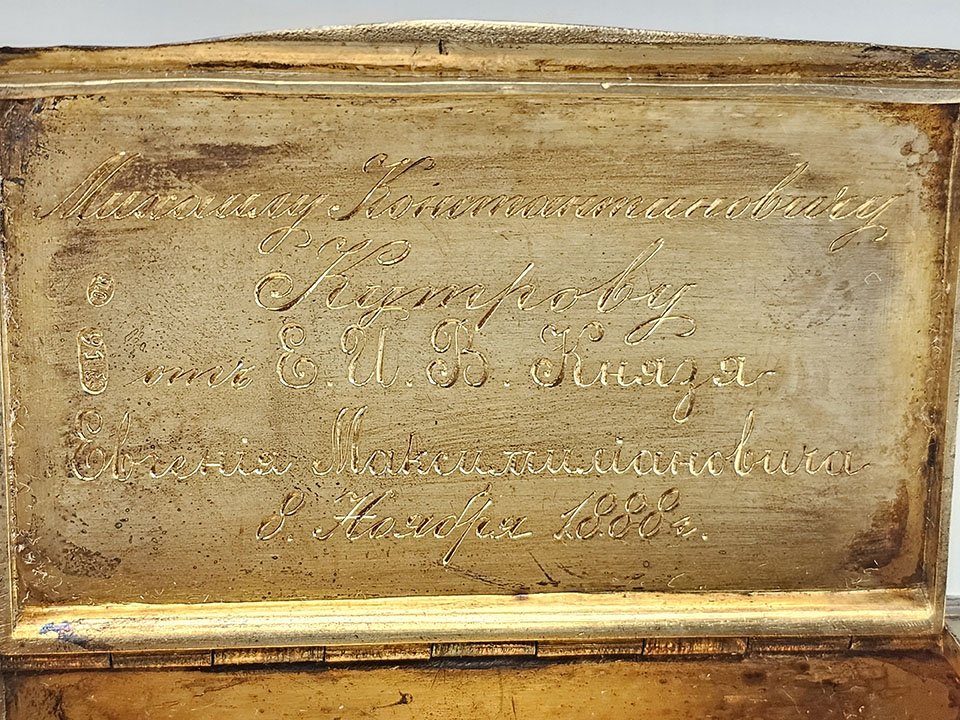 Михаилу Константиновичу
Кутрову
отъ Е. И. В. Князя
Евгенія Максимиліановича
8. Ноября 1888 г.